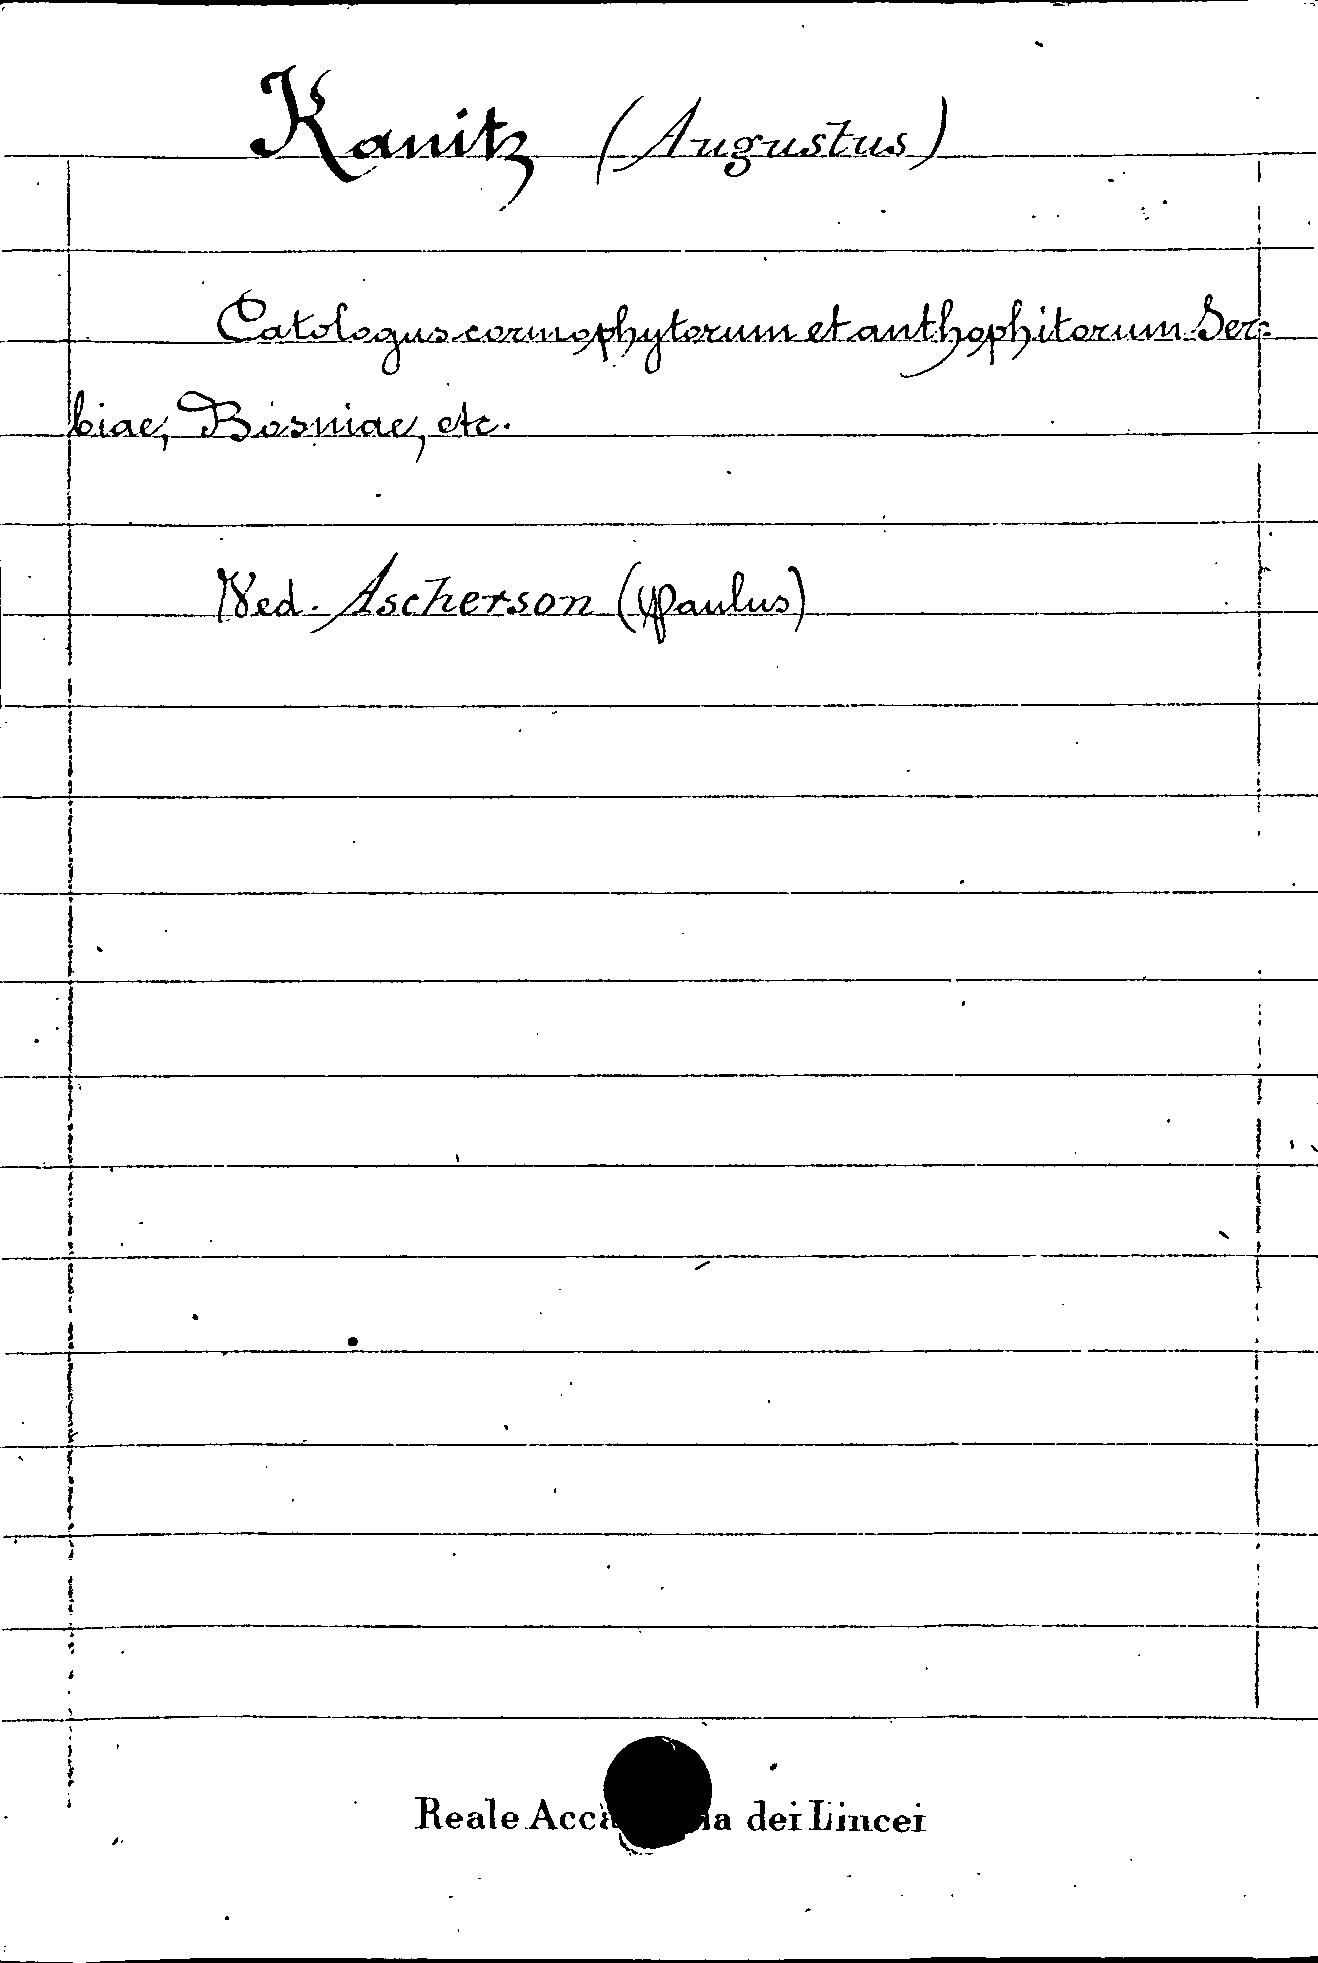 Kanitz (Augustus)
Catologus cormophytorum et anthophitorum Ser=
biae, Bosniae, etc.
Ved. Ascherson (Paulus)
Reale Acca dei Lincei